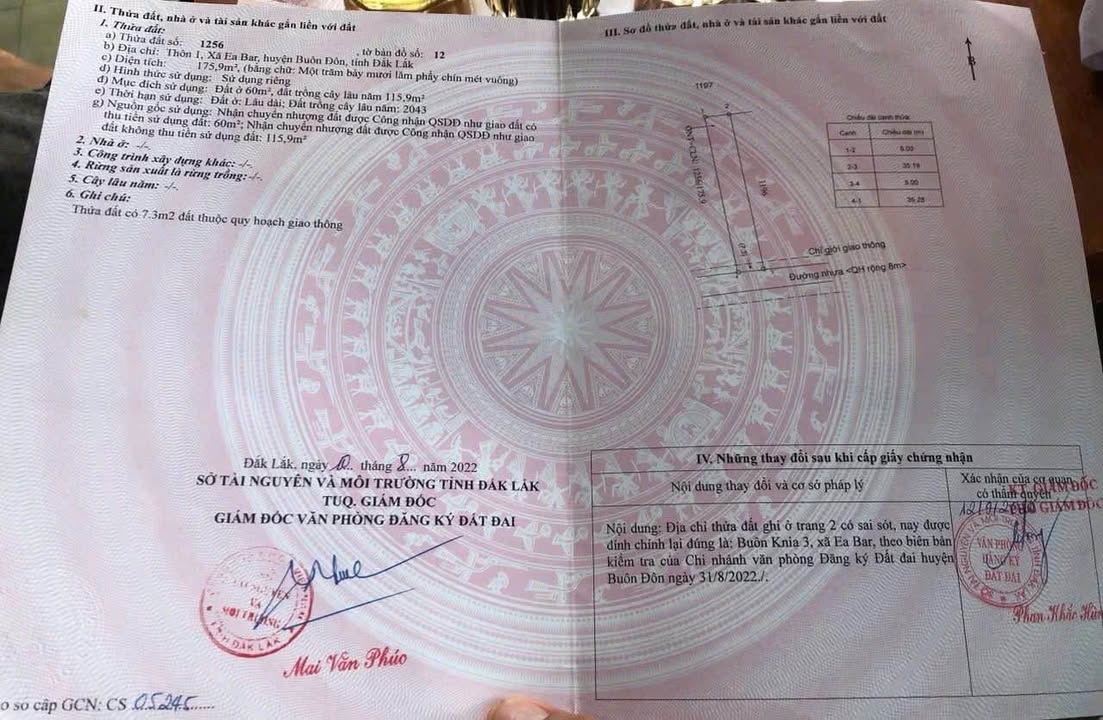 II. Thửa đất, nhà ở và tài sản khác gắn liền với đất
1. Thửa đất:
a) Thửa đất số: 1256 , tờ bản đồ số: 12
b) Địa chỉ: Thôn 1, Xã Ea Bar, huyện Buôn Đôn, tỉnh Đắk Lắk
c) Diện tích: 175,9m², (bằng chữ: Một trăm bảy mươi lăm phẩy chín mét vuông)
d) Hình thức sử dụng: Sử dụng riêng
đ) Mục đích sử dụng: Đất ở 60m², đất trồng cây lâu năm 115,9m²
e) Thời hạn sử dụng: Đất ở: Lâu dài; Đất trồng cây lâu năm: 2043
g) Nguồn gốc sử dụng: Nhận chuyển nhượng đất được Công nhận QSDĐ như giao đất có
thu tiền sử dụng đất: 60m²; Nhận chuyển nhượng đất được Công nhận QSDĐ như giao
đất không thu tiền sử dụng đất: 115,9m²
2. Nhà ở: -/-
3. Công trình xây dựng khác: -/-
4. Rừng sản xuất là rừng trồng: -/-
5. Cây lâu năm: -/-
6. Ghi chú:
Thửa đất có 7.3m2 đất thuộc quy hoạch giao thông
Đắk Lắk, ngày tháng 8 năm 2022
SỞ TÀI NGUYÊN VÀ MÔI TRƯỜNG TỈNH ĐẮK LẮK
TUQ. GIÁM ĐỐC
GIÁM ĐỐC VĂN PHÒNG ĐĂNG KÝ ĐẤT ĐAI
VÀ
MÔI TRƯỜNG
TỈNH ĐẮK LẮK
Mai Văn Phúc
o sơ cấp GCN: CS 05245
III. Sơ đồ thửa đất, nhà ở và tài sản khác gắn liền với đất
B
1197
2
ONT+CLN: 1256/175.9
1196
Chiều dài cạnh thửa
Cạnh Chiều dài (m)
1-2 5.00
2-3 35.19
3-4 5.00
4-1 35.25
Chỉ giới giao thông
Đường nhựa <QH rộng 8m>
IV. Những thay đổi sau khi cấp giấy chứng nhận
Nội dung thay đổi và cơ sở pháp lý
Xác nhận của cơ quan
có thẩm quyền
Nội dung: Địa chỉ thửa đất ghi ở trang 2 có sai sót, nay được
đính chính lại đúng là: Buôn Knia 3, xã Ea Bar, theo biên bản
kiểm tra của Chi nhánh văn phòng Đăng ký Đất đai huyện
Buôn Đôn ngày 31/8/2022./.
KT. GIÁM ĐỐC
PHÓ GIÁM ĐỐC
VĂN PHÒNG
ĐĂNG KÝ
ĐẤT ĐAI
Phan Khắc